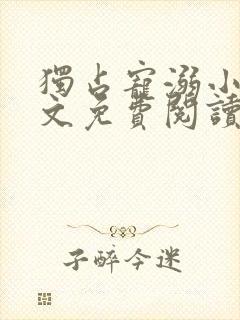 獨占寵溺小
文免費閱讀
子醉今迷